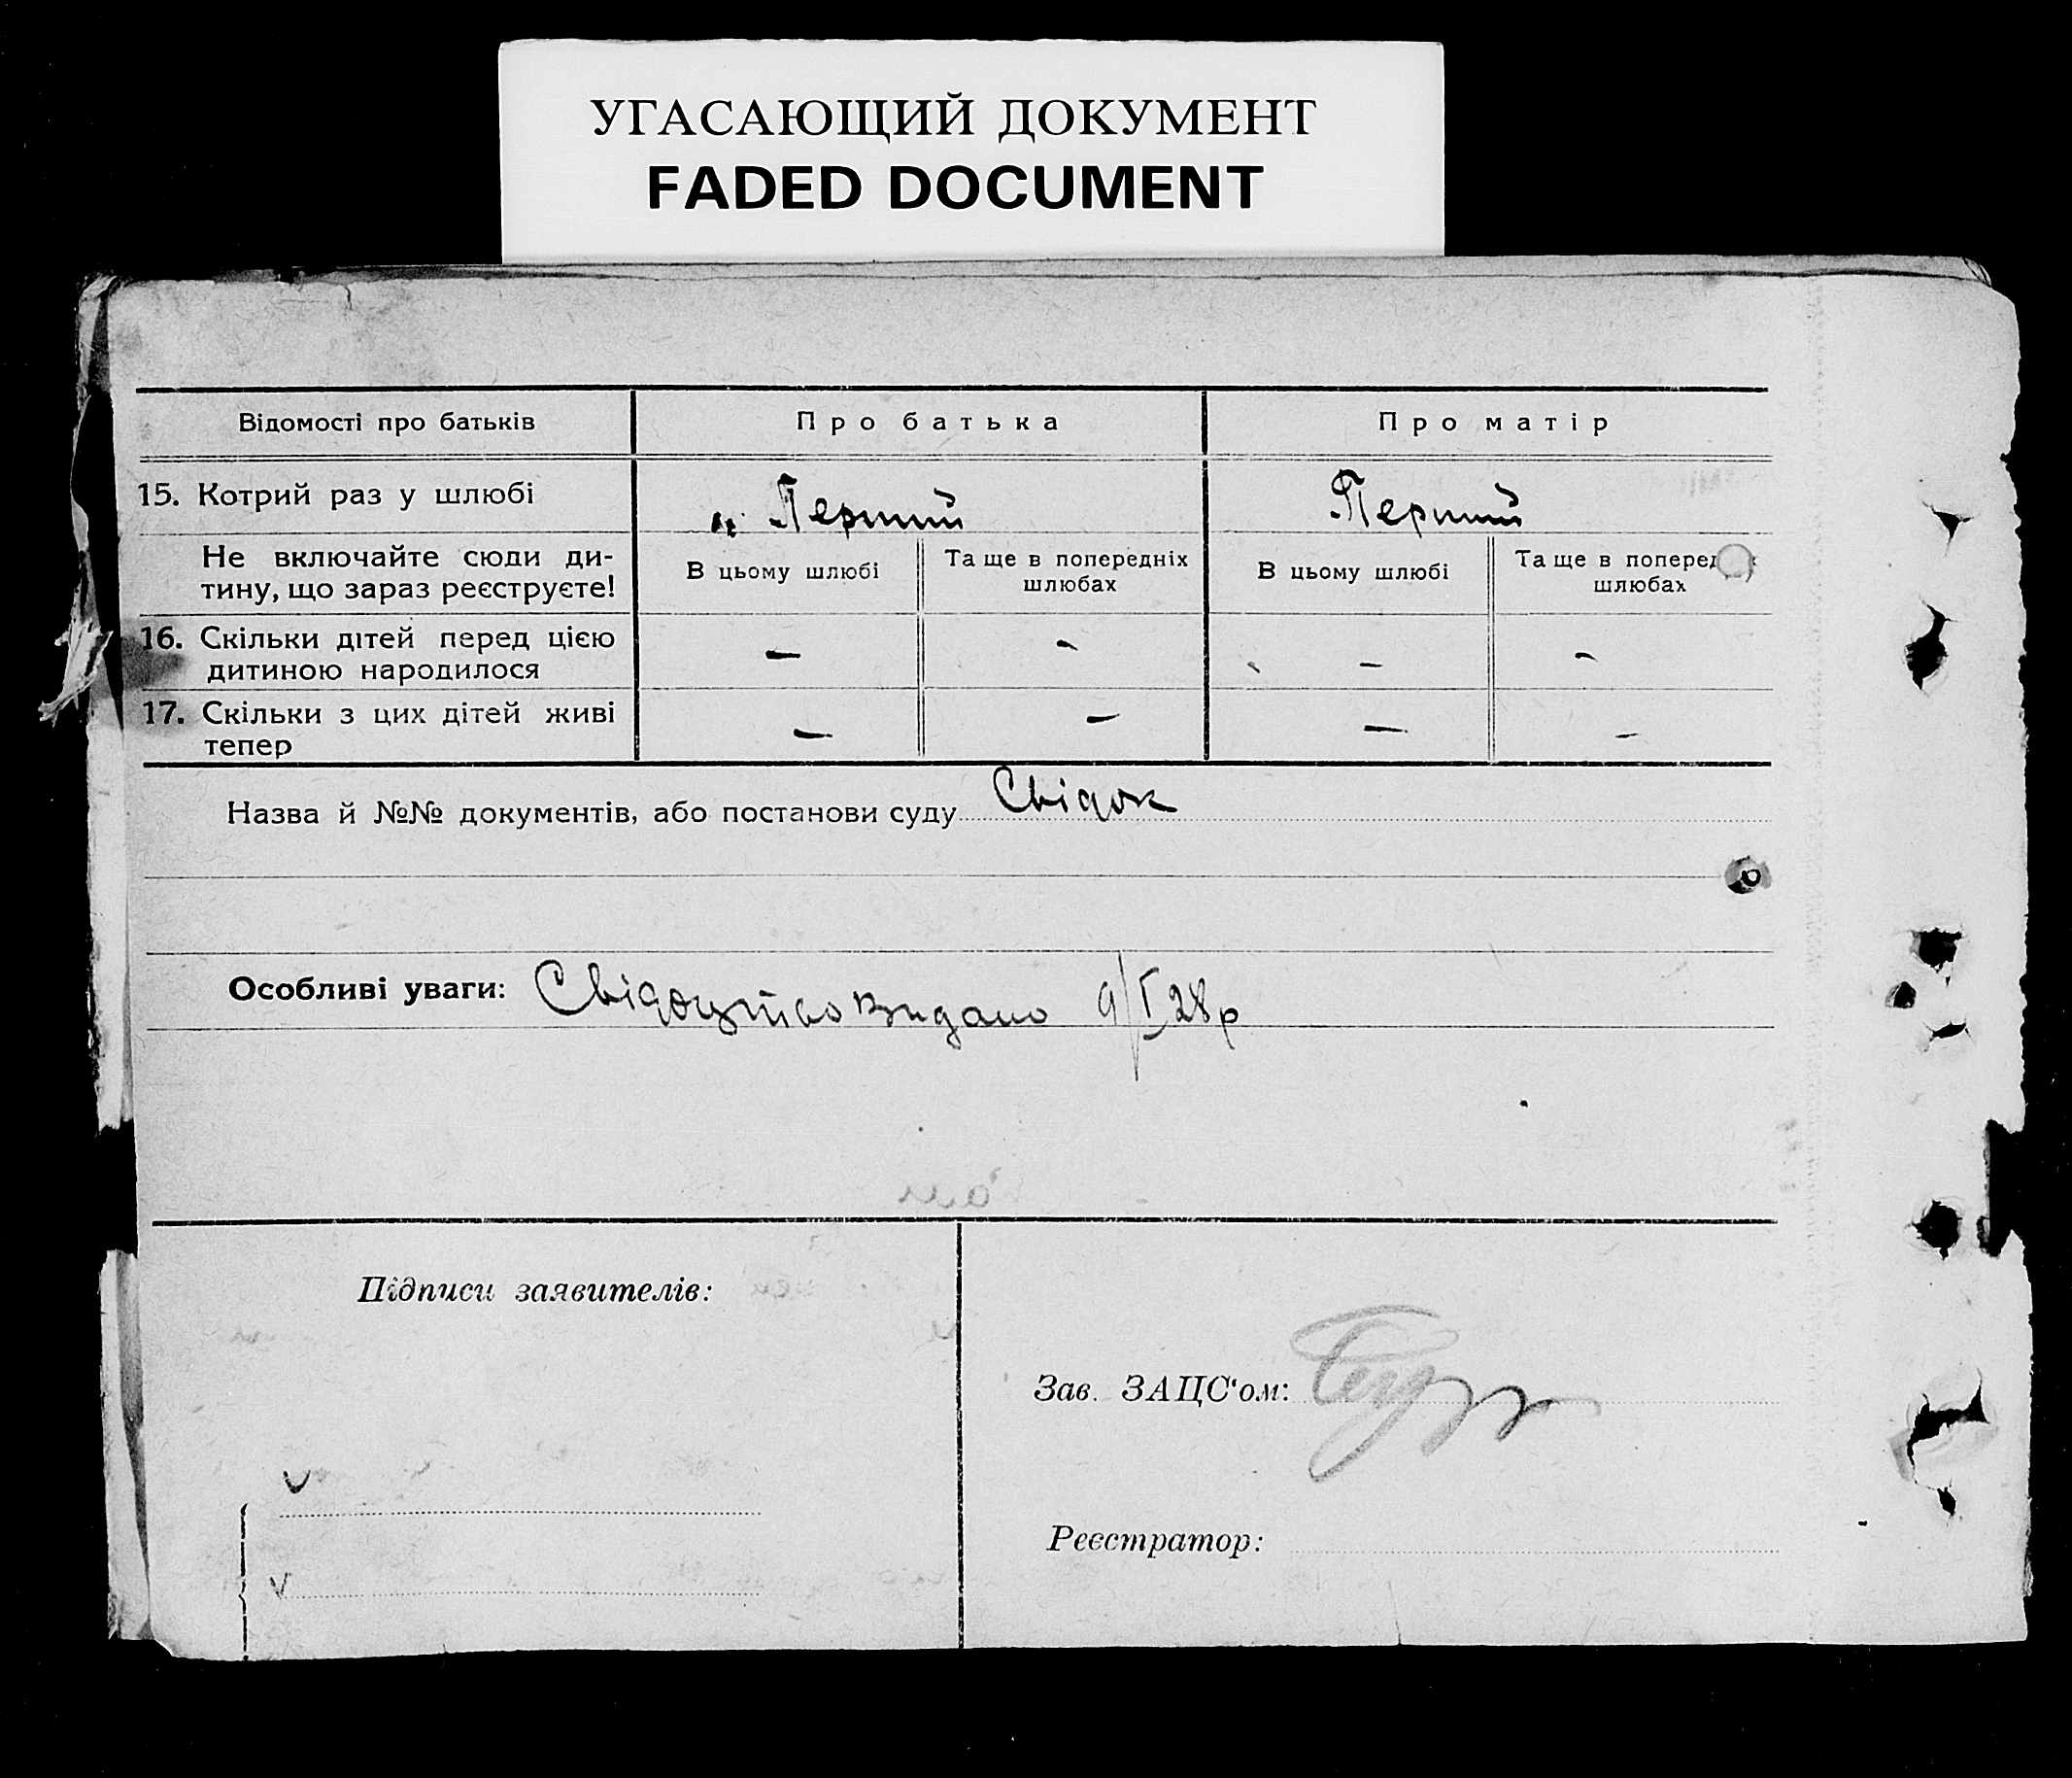 УГАСАЮЩИЙ ДОКУМЕНТ
FADED DOCUMENT
Відомості про батьків
Про батька
Про матір
15. Котрий раз у шлюбі
Перший
Перший
Не включайте сюди ди-
тину, що зараз реєструєте!
В цьому шлюбі
Та ще в попередніх
шлюбах
В цьому шлюбі
Та ще в поперед
шлюбах
16. Скільки дітей перед цією
дитиною народилося
–
–
–
–
17. Скільки з цих дітей живі
тепер
–
–
–
–
Назва й №№ документів, або постанови суду Свідок
Особливі уваги: Свідоцтво видано 9/I 28 р
Підписи заявителів:
Зав. ЗАЦС'ом:
Реєстратор: